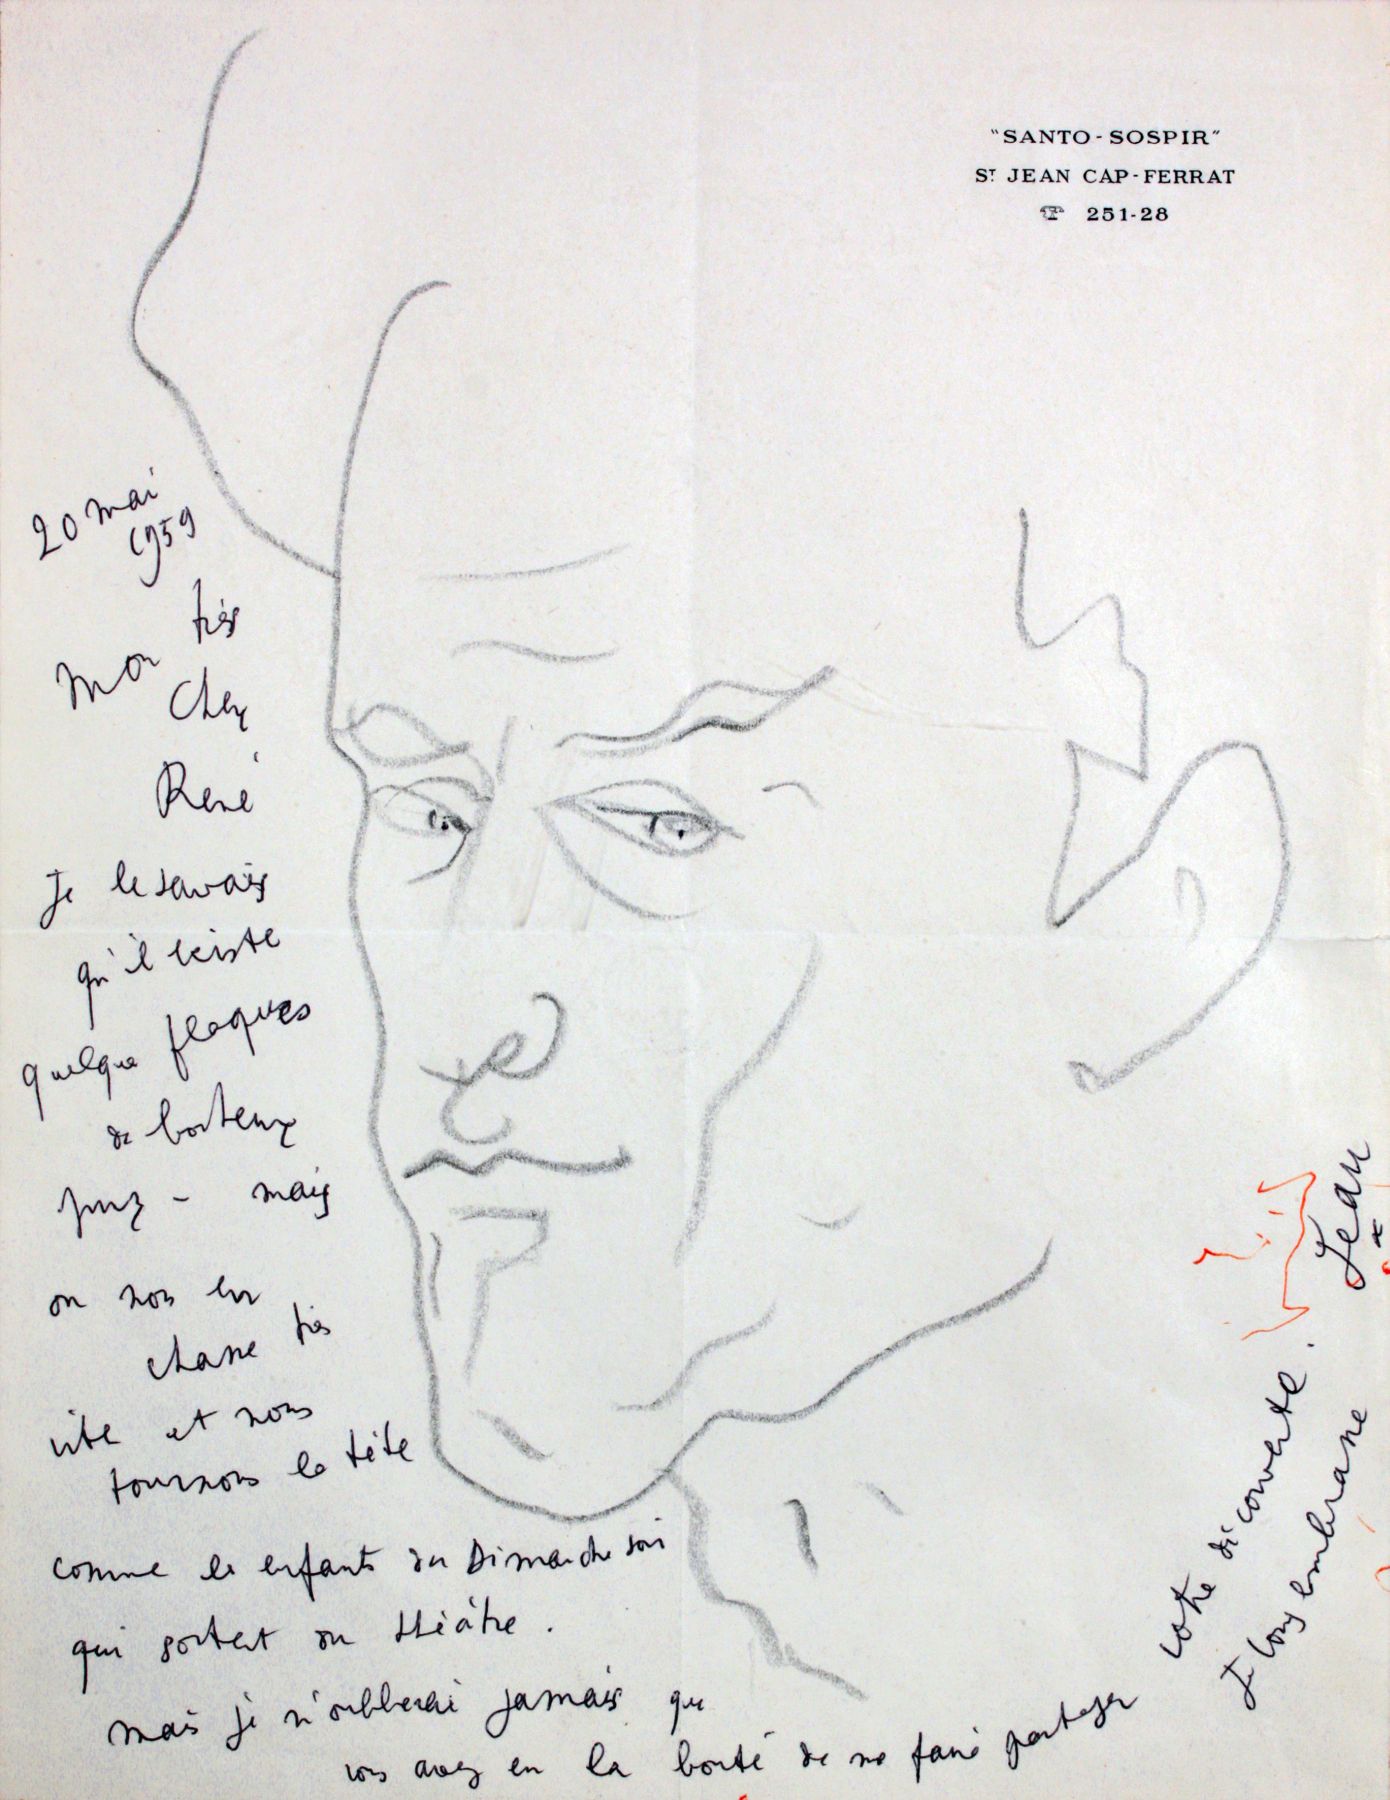 "SANTO-SOSPIR"
ST JEAN CAP-FERRAT
☎ 251-28
20 mai
1959
Mon très
cher
René
Je le savais
qu'il existe
quelque flaques
de bonteux
purz - mais
on nous en
chasse très
vite et nous
tournons la tête
comme les enfants du Dimanche soir
qui sortent du théâtre.
Mais je n'oublierai jamais que
vous avez eu la bonté de me faire partager
votre découverte.
Je vous embrasse
Jean